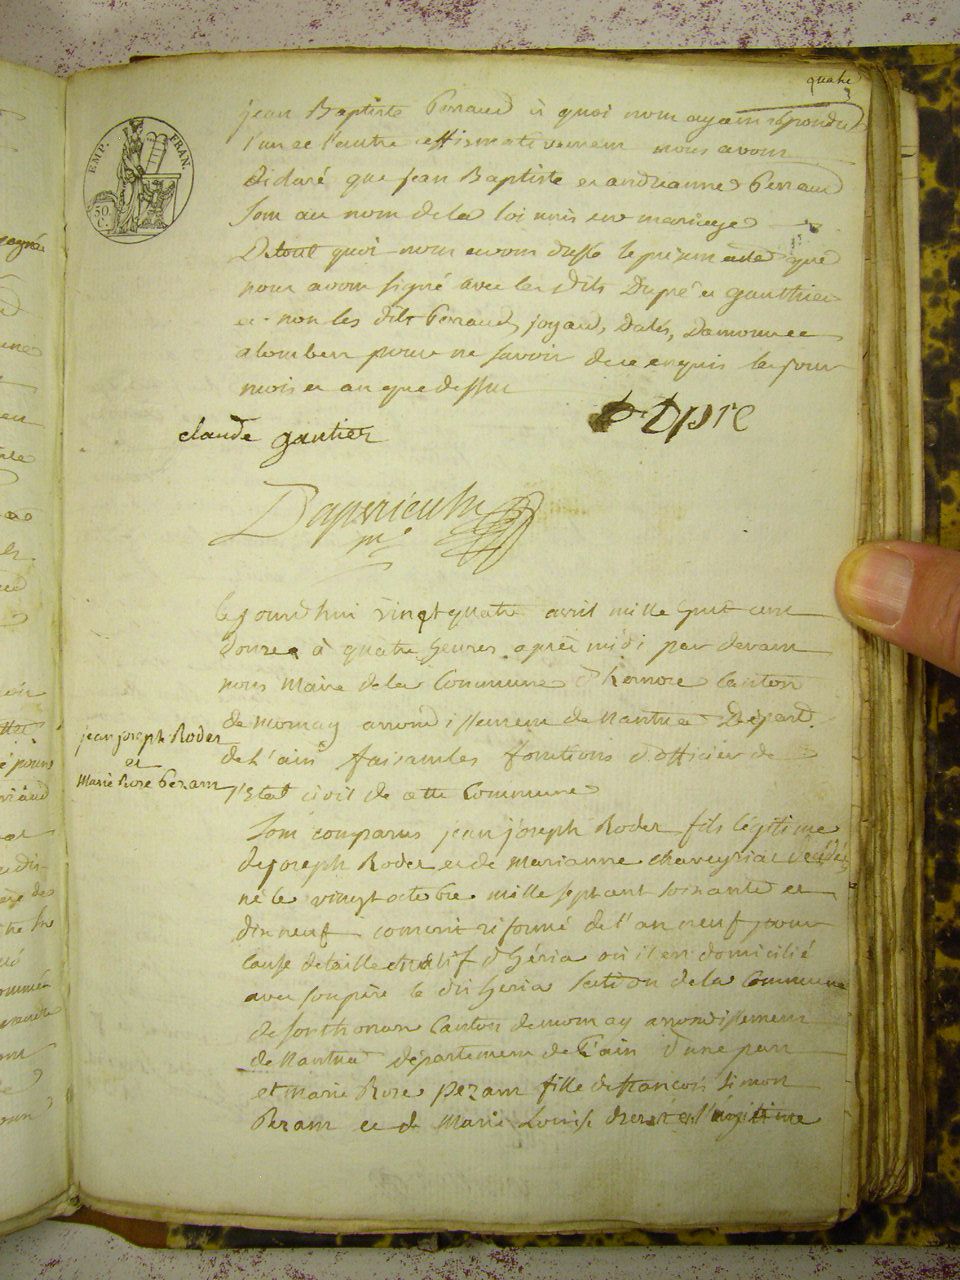 quatre
EMP. FRAN.
50 C.
jean Baptiste Perraud à quoi nom ayam repondu
l'un et l'autre affirmativemem nous avons
Declaré que jean Baptiste et andreanne Perraud
Som au nom de la loi unis en mariage
De tout quoi nous avons dressé le présent acte que
nous avons signé avec les dits Dupré et gauthier
et non les dits Perraud, joyard, Dalés, Damour et
alombert pour ne savoir de ce enquis les jour
mois et an que dessus
claude gautier
Dpre
le jourdhui vingt quatre avril mille huit cent
Douze à quatre heures après midi par devam
nous Maire de la Commune d'hemore Canton
de mornay arrondissemem de nantua Départ.
de l'ain faisant les fonctions d'officier de
l'Etat civil de cette Commune
jean joseph Roder
et
Marie Rose Pezam
Som comparus jean joseph Roder fils légitime
de joseph Roder et de marianne chaveyriat
né le vingt octobre mille sept cent soixante et
dix neuf conscrit réformé de l'an neuf pour
cause de taille natif d'héria où il est domicilié
avec son père le dit heria section de la commune
de sonthonax Canton de mornay arrondissement
de nantua département de l'ain d'une part
et Marie Rose pezam fille de françois simon
Pezam et de Marie Louise légitime